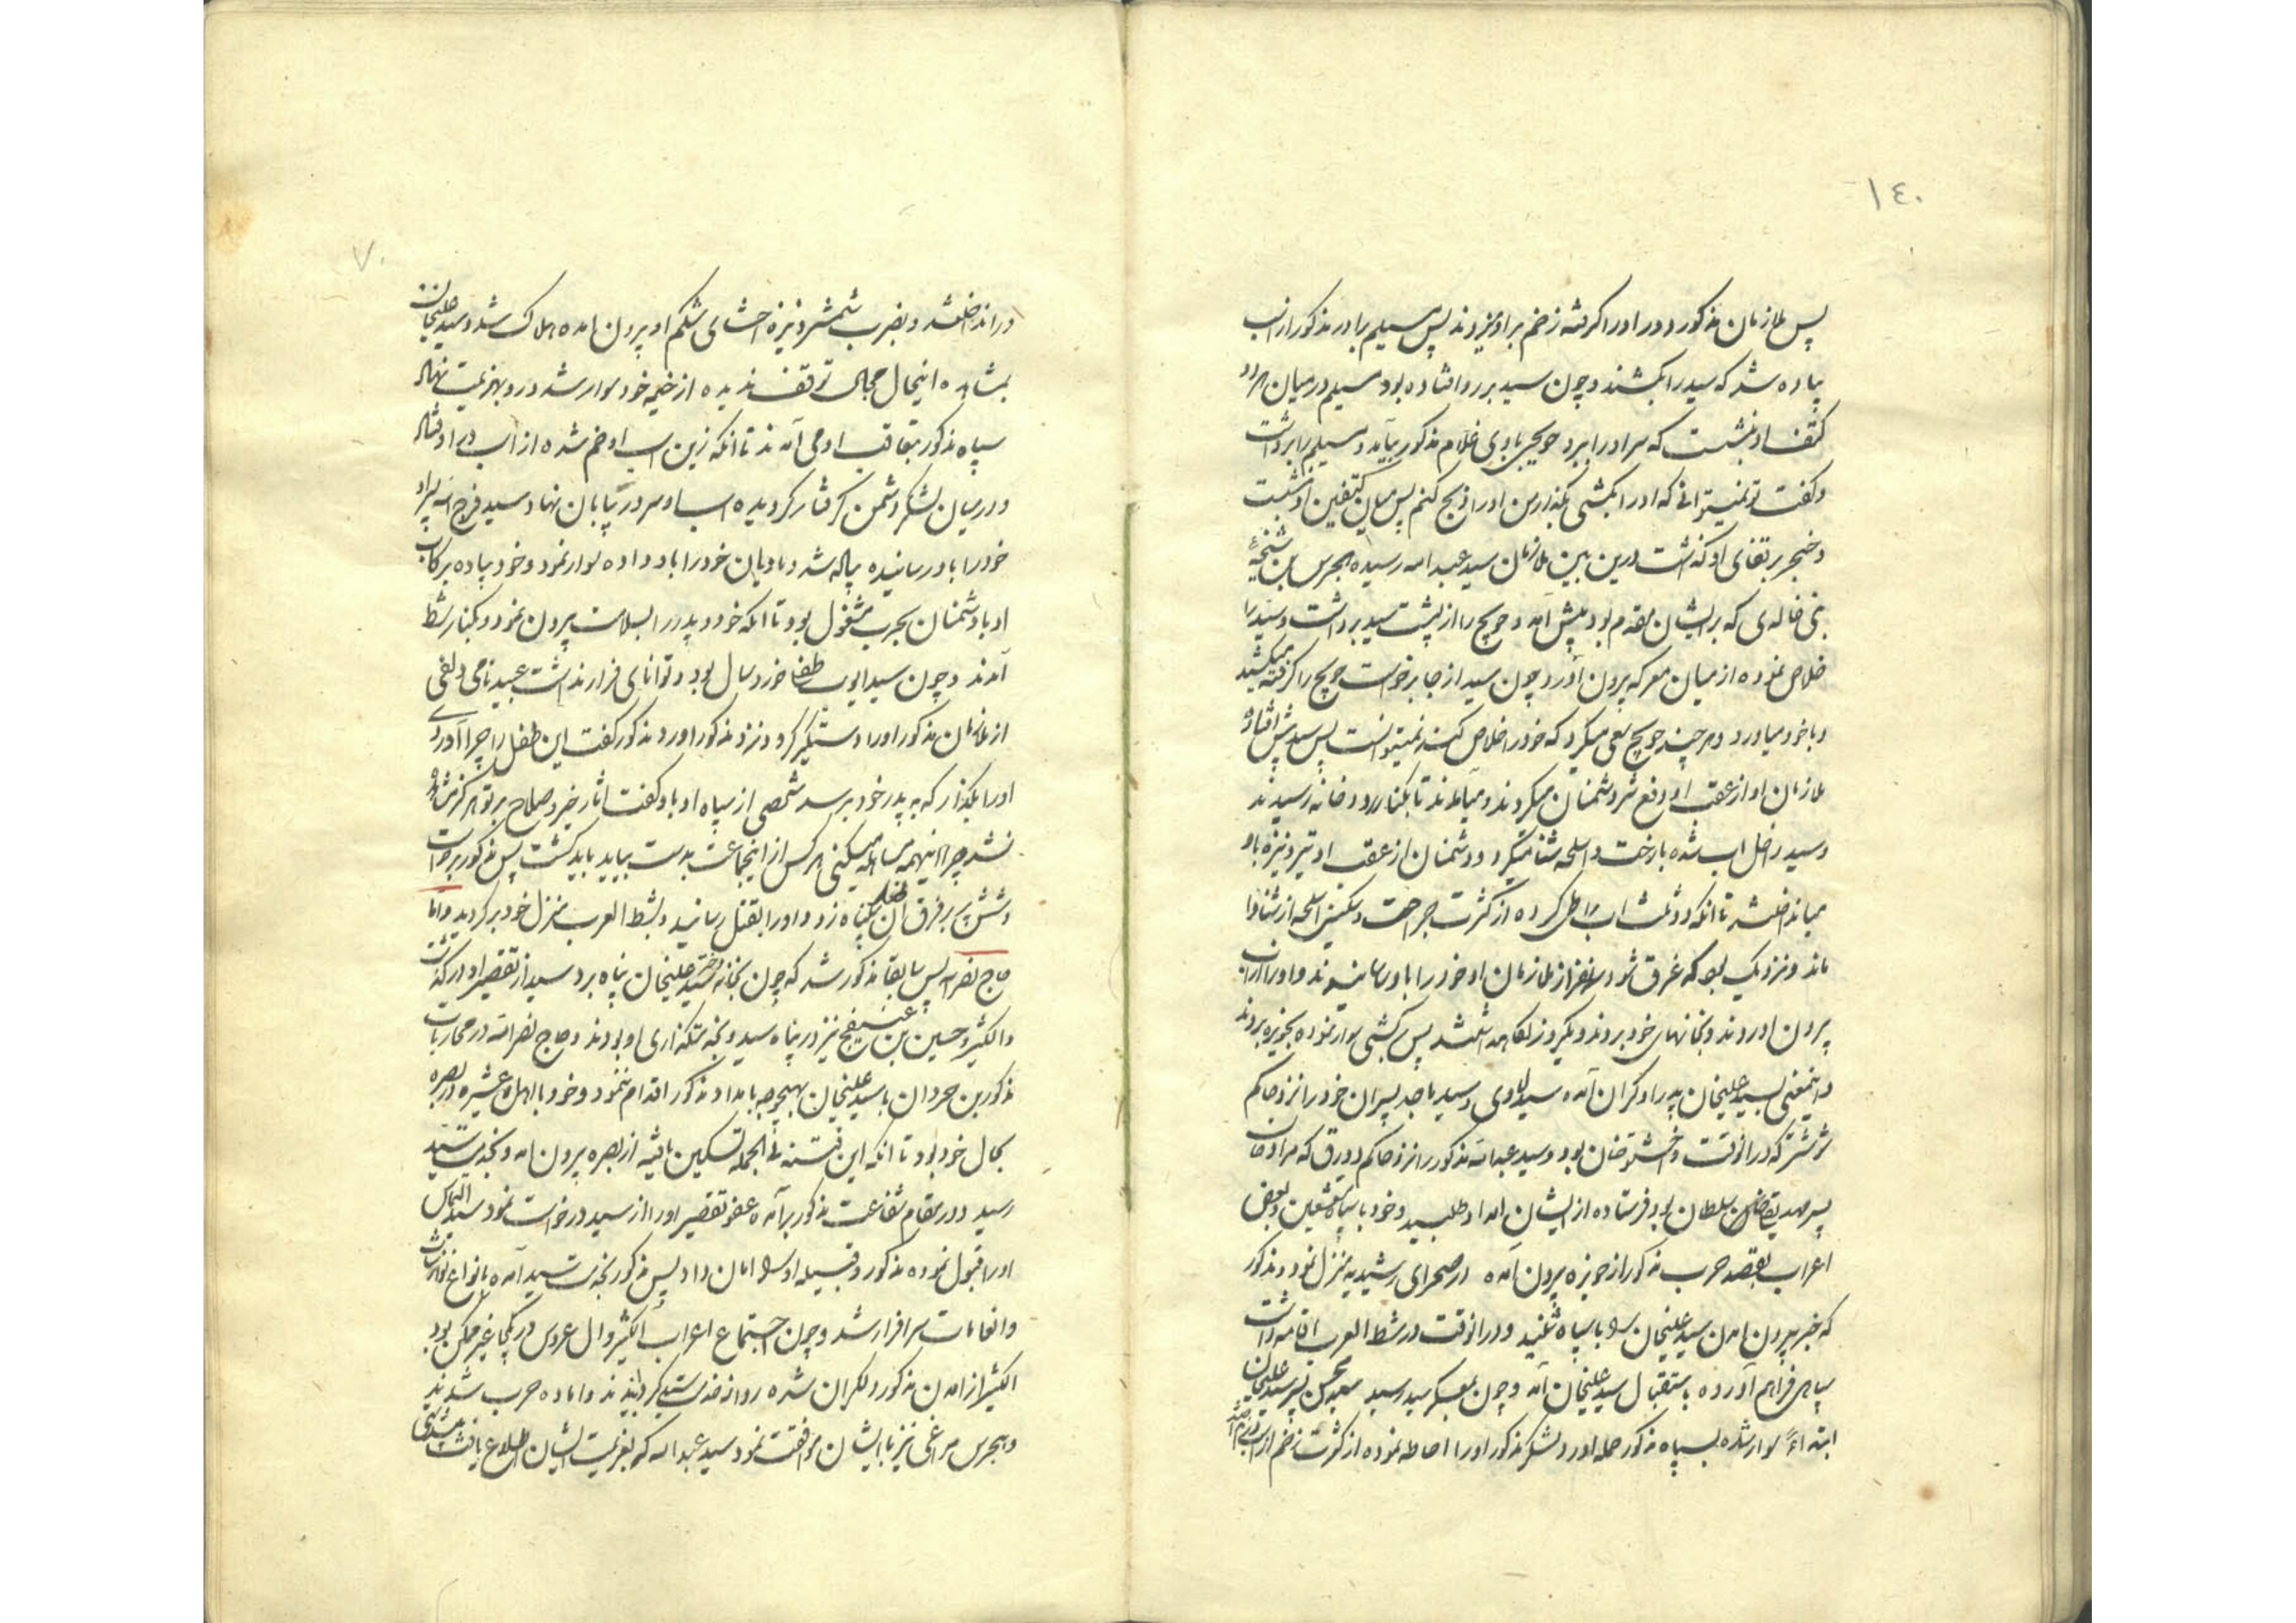 ١٤٠
پس ملازمان مذکور دور اورا گرفته زخم بر او میزدند پس سیلم برادر مذکور از اسب
پیاده شد که سید را بکشند و چون سید بر رو افتاده بود سیلم در میان هر دو
کتف او بنشست که سر او را ببرد حویچی غلام مذکور بیآید و سیلم را برداشت
و گفت تو نمیتوانی که او را بکشی بگذار من او را ذبح کنم پس میان کتفین او بنشست
و خنجر بر قفای او گذاشت درین بین ملازمان سید عبد الله رسیده بجرس بن
بنی خالدی که بر ایشان مقدم بود پیش آمد و حویچ را از پشت سید برداشت و سید را
خلاص نموده از میان معرکه بیرون آورد و چون سید از جا برخواست حویچ را گرفته میکشید
و با خود میاورد و هر چند حویچ سعی میکرد که خود را خلاص کند نمیتوانست پس سید پیش افتاده
ملازمان او از عقب او دفع شر دشمنان میکردند و میآمدند تا بکنار رودخانه رسیدند
و سید داخل آب شده با رخت و اسلحه شنا میکرد و دشمنان از عقب او تیر و نیزه باو
میانداختند تا آنکه دو ثلث آب را طی کرده از کثرت جراحت و سنگینی اسلحه از شنا وا
ماند و نزدیک بود که غرق شود سه نفر از ملازمان او خود را باو رسانیدند و او را از آب
بیرون اوردند و بخانهای خود بردند و یکروز نگاه داشتند پس بکشتی سوار نموده بحویزه بردند
و اینمعنی بسید علیخان پدر او گران آمده سید لاوی و سید ماجد پسران خود را نزد حاکم
شوشتر که در انوقت واخشتوخان بود و سید عبدالله مذکور را نزد حاکم دورق که مراد خان
پسر مهدیقلی سلطان بود فرستاده از ایشان امداد طلبید و خود با سپاه مشعشعین و بعض
اعراب بقصد حرب مذکور از حویزه بیرون آمده در صحرای رشیدیه منزل نمود و مذکور
که خبر بیرون امدن سید علیخان را با سپاه شنید و در انوقت در شط العرب اقامه داشت
سپاهی فراهم آورده باستقبال سید علیخان آمد و چون بمعسکر سید رسید سید محسن پسر سید علیخان
ابتداءً سوار شده بسپاه مذکور حمله اورد و لشکر مذکور او را احاطه نموده از کثرت زخم از اسب
٧٠
در انداختند و بضرب شمشیر و نیزه احشای شکم او بیرون امده هلاک شد و سید علیخان
بمشاهده اینحال مجال توقف ندیده از خیمه خود سوار شد و رو بهزیمت نهاد
سپاه مذکور بتعاقب او می آمدند تا آنکه زین اسب او خم شده از اسب در اوفتاد
و در میان لشکر دشمن گرفتار گردیده اسب او سر در بیابان نهاد سید فرج الله پسر او
خود را باو رسانیده پیاده شد و مادیان خود را باو داده سوار نمود و خود پیاده در رکاب
او با دشمنان بحرب مشغول بود تا انکه خود و پدر را بسلامت بیرون نمود و بکنار شط
آمدند و چون سید ایوب طفل خوردسال بود و توانای فرار نداشت عبید نامی
از ملازمان مذکور او را دستگیر کرد و نزد مذکور اورد مذکور گفت این طفل را چرا آوردی
او را بگذار که به پدر خود برسد شخصی از سپاه او باو گفت اثار خیر و صلاح بر تو هرگز مشاهده
نشد چرا اینهمه مساهله میکنی هر کس از اینجماعت بدست بیاید باید کشت پس مذکور برخواست
و شش پر بر فرق آن طفل بیگناه زد و او را بقتل رسانید و بشط العرب بمنزل خود برگردید و اما
حاج نصرالله پس سابقا مذکور شد که چون بخانه دختر سید علیخان پناه برد سید از تقصیر او درگذشت
و الکثیر و حسین بن نیز در پناه سید و بخدمتگذاری او بودند و حاج نصرالله در محاربات
مذکورین حردان با سید علیخان بهیچوجه بامداد مذکور اقدام ننمود و خود با اهل و عشیره در بصره
بحال خود بود تا انکه این فتنه فی الجمله تسکین یافته از بصره بیرون امد و بخدمت سید
رسید و در مقام شفاعت مذکور برآمده عفو تقصیر او را از سید درخواست نمود سید التماس
او را قبول نموده مذکور و قبیله او را امان داد پس مذکور بخدمت سید آمده بانواع نوازشات
و انعامات سرافراز شد و چون اجتماع اعراب الکثیر و ال عروس در یکجا غیر ممکن بود
الکثیر از امدن مذکور دلگران شده رو از خدمت سید گردانیدند و اماده حرب شدند
و بجرس مراغی نیز با ایشان موافقت نمود سید عبد الله که بعزیمت ایشان اطلاع یافت